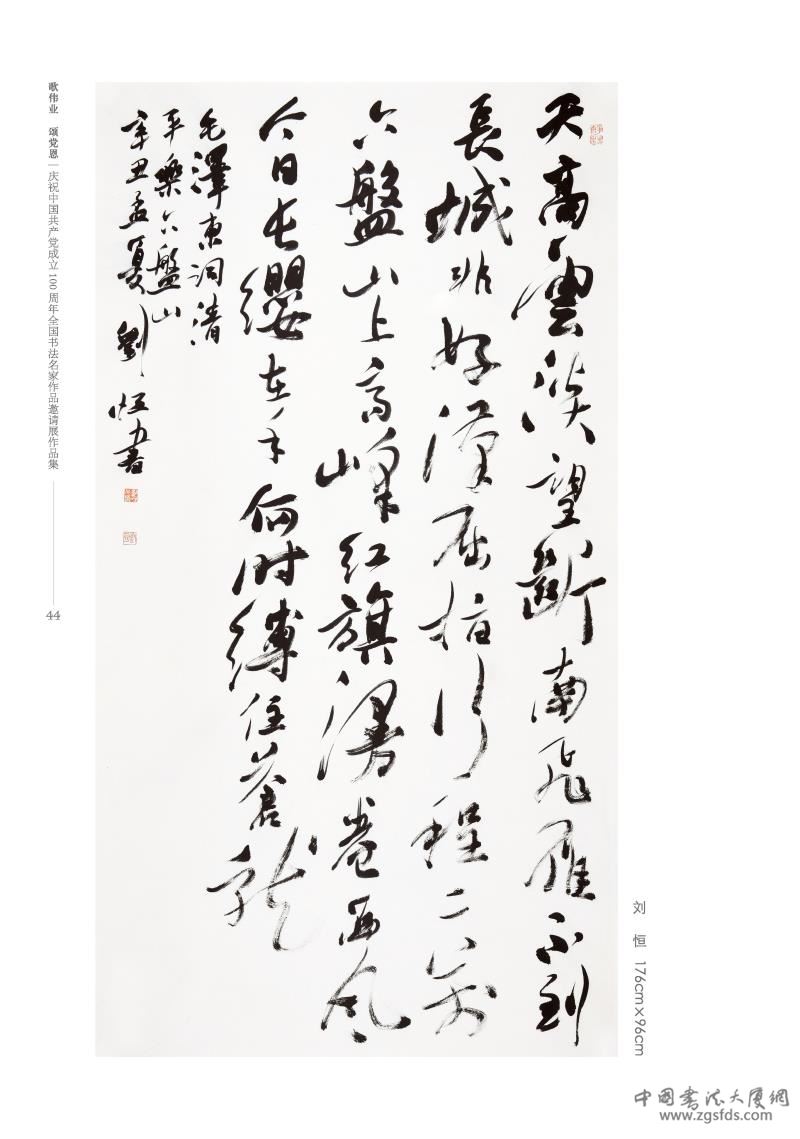 天高雲淡望斷南飛雁不到
長城非好漢屈指行程二萬
六盤山上高峰紅旗漫卷西風
今日長纓在手何時縛住蒼龍
毛澤東詞清
平樂六盤山
辛丑孟夏劉恒書
歌伟业 颂党恩 | 庆祝中国共产党成立100周年全国书法名家作品邀请展作品集
44
刘 恒 176cm×96cm
中国书法大厦網
www.zgsfds.com